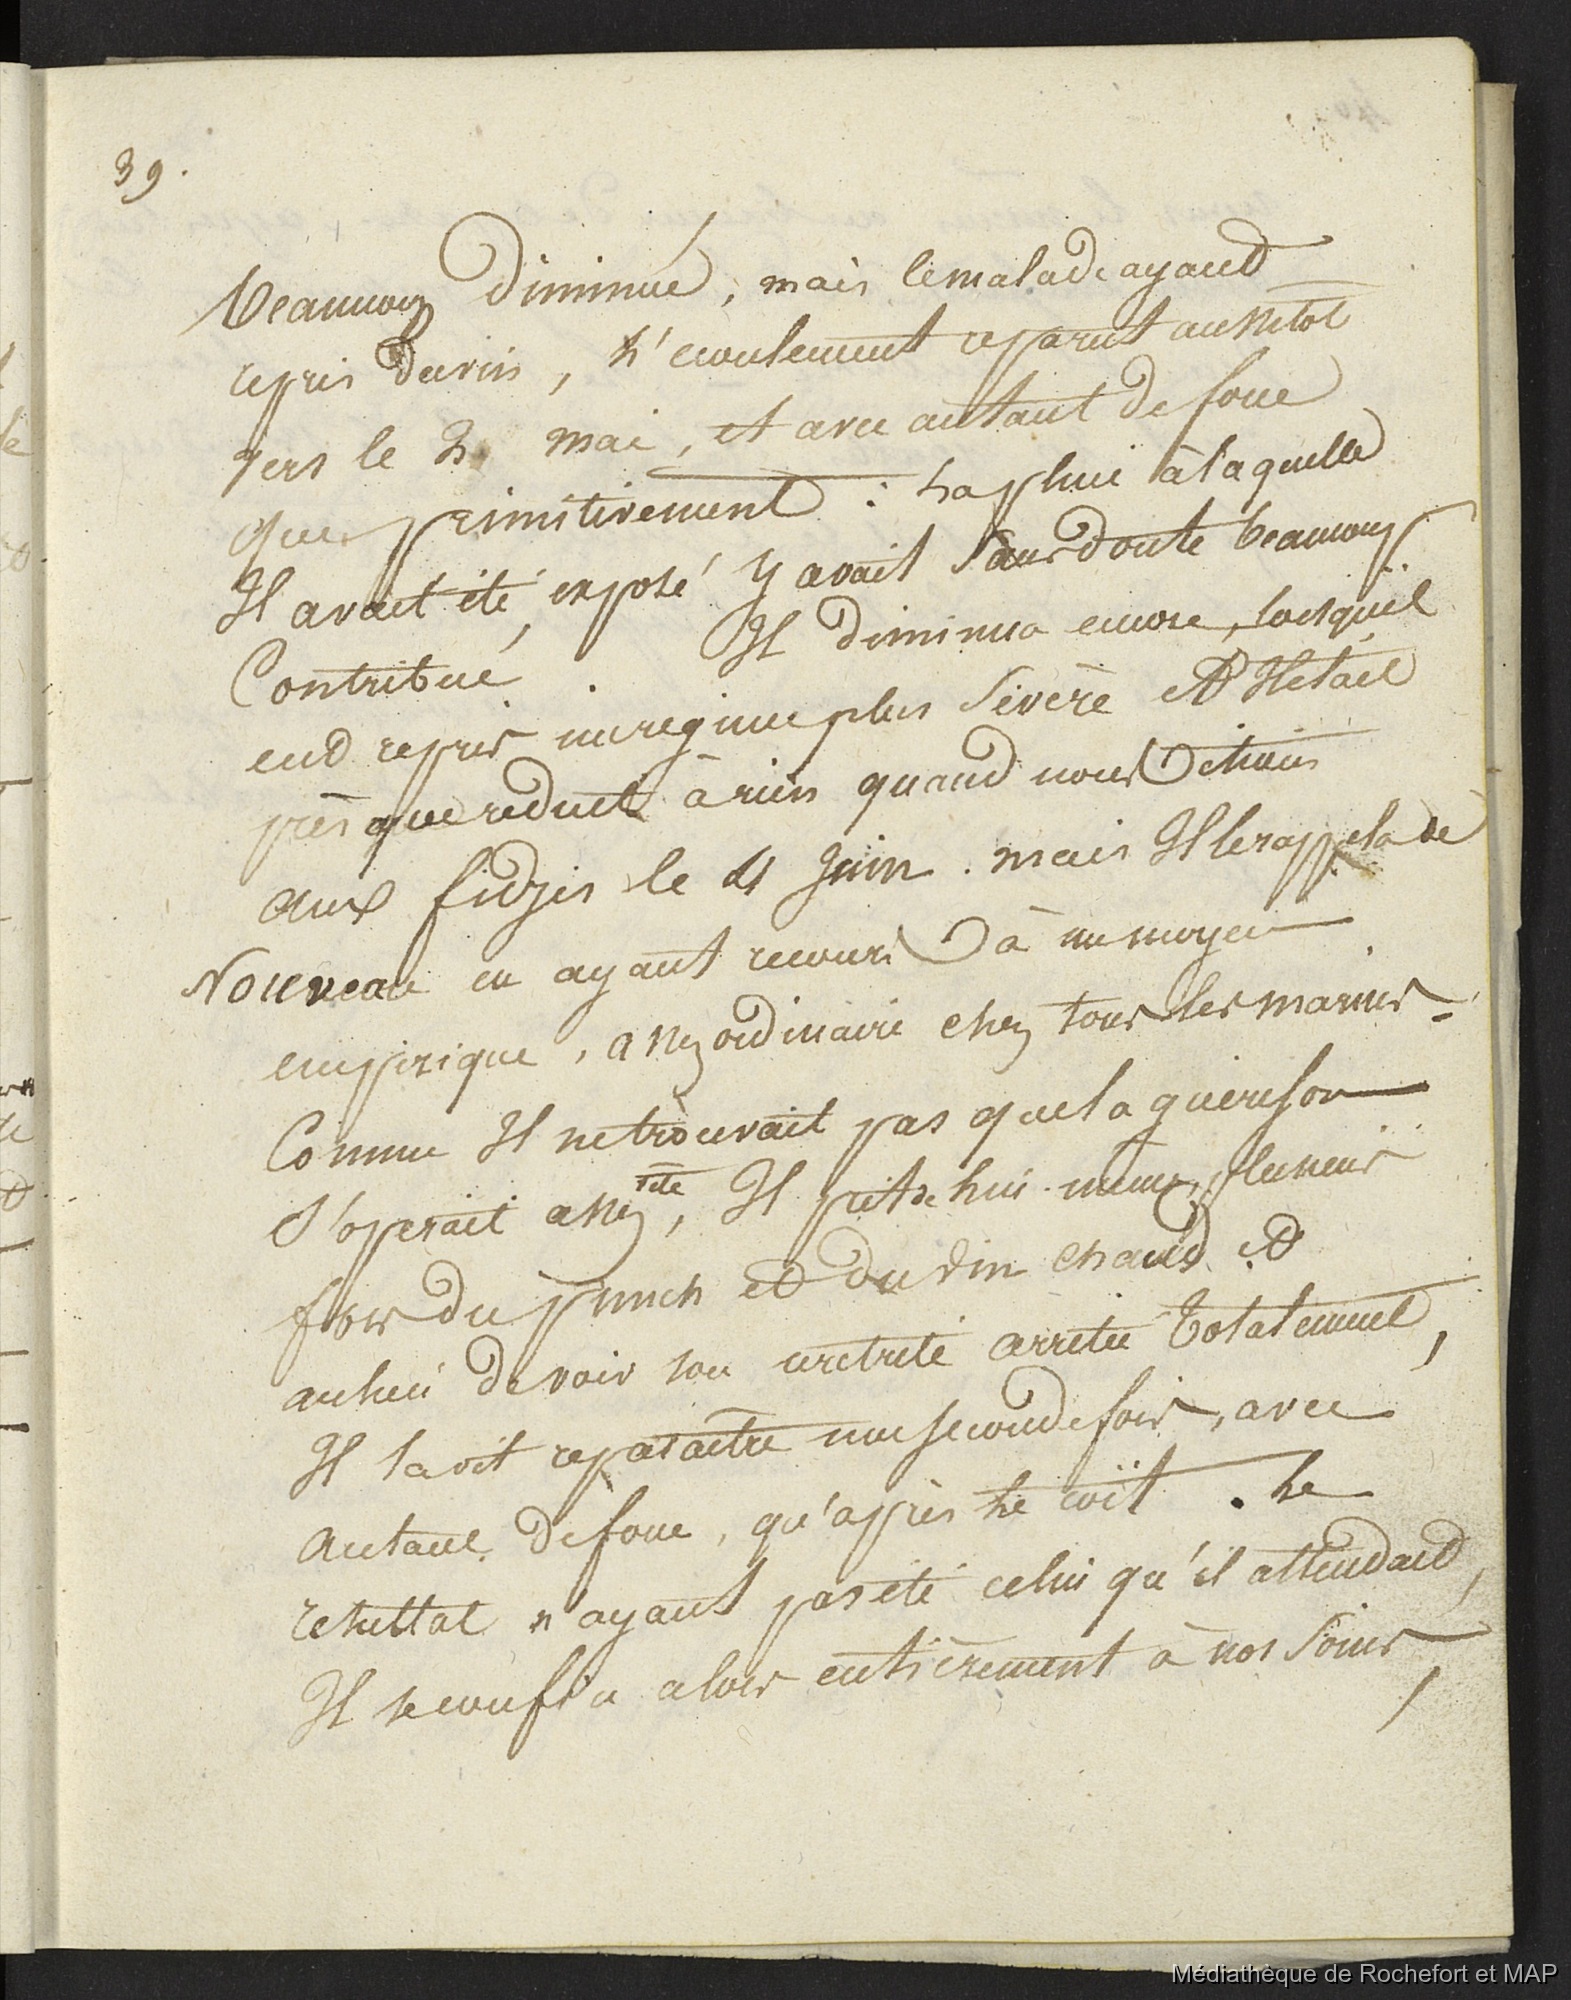 39.
beaucoup diminué, mais le malade ayant
repris du vin, l'ecoulement reparut aussitot
vers le 2 mai, et avec autant de force
que primitivement : la pluie à laquelle
Il avait été exposé y avait sans doute beaucoup
Contribué. Il diminua encore, lorsqu'il
eut repris un regime plus sévère et Il était
presque reduit à rien quand nous étions
aux fidjis le 4 Juin. mais Il le rappela de
Nouveau en ayant recours à un moyen
empirique, assez ordinaire chez tous les marins -
Comme Il ne trouvait pas que la guerison
s'operait assez vite, Il prit de lui meme plusieurs
fois du punch et du vin chaud et
au lieu de voir son uretrite arretée totalement,
Il la vit reparaître une seconde fois, avec
autant de force, qu'après le coït. le
resultat n'ayant pas été celui qu'il attendait,
Il se confia alors entièrement à nos soins,
Médiathèque de Rochefort et MAP